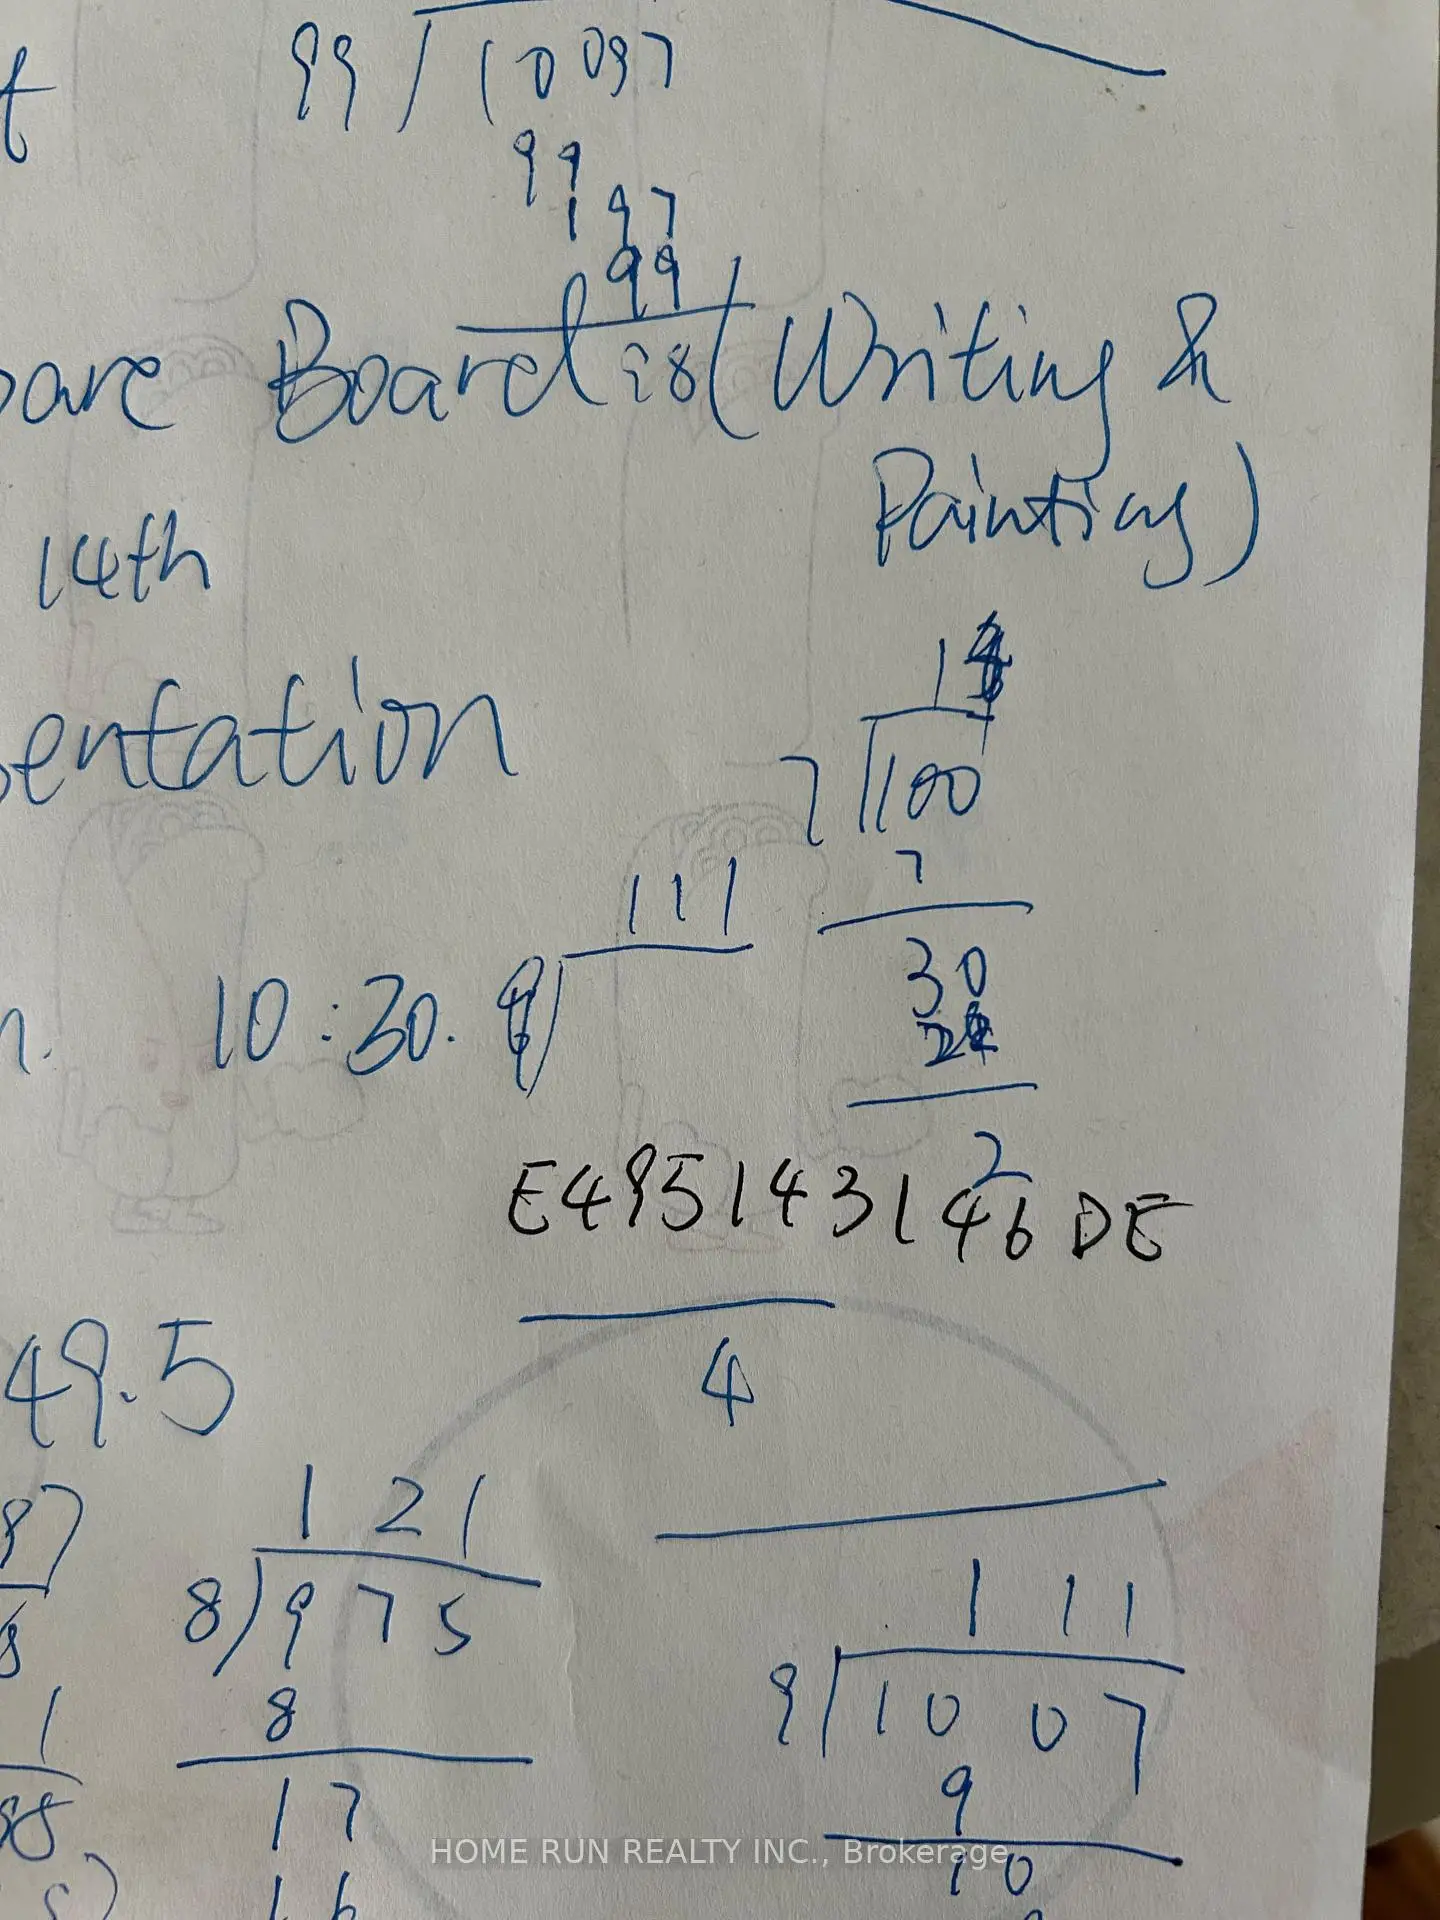 99 10097
99
197
99
Board is (Writing &
Painting)
14th
entation
1
7 100
7
111
30
10:30.
2
E495143146 DE
49.5
4
121
8 975
8
17
16
111
9 1007
9
10
1
HOME RUN REALTY INC., Brokerage